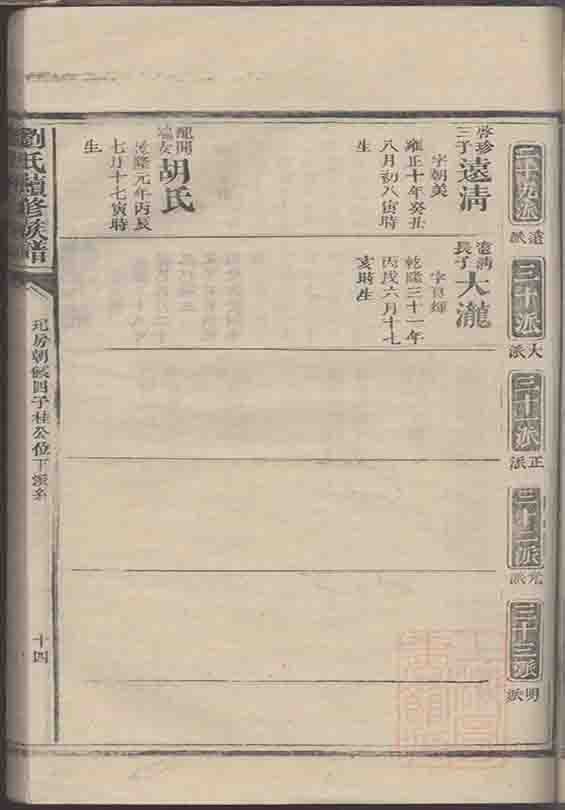 二十九派
遠派
三十派
大派
三十一派
正派
三十二派
元派
三十三派
明派
啓珍
三子
遠清
字朝美
雍正十年癸丑
八月初八寅時
生
配開
胡氏
乾隆元年丙辰
七月十七寅時
生
遠清
長子
大瀧
字良輝
乾隆三十一年
丙戌六月十七
亥時生
劉氏續修族譜
四子桂公位下派系
十四